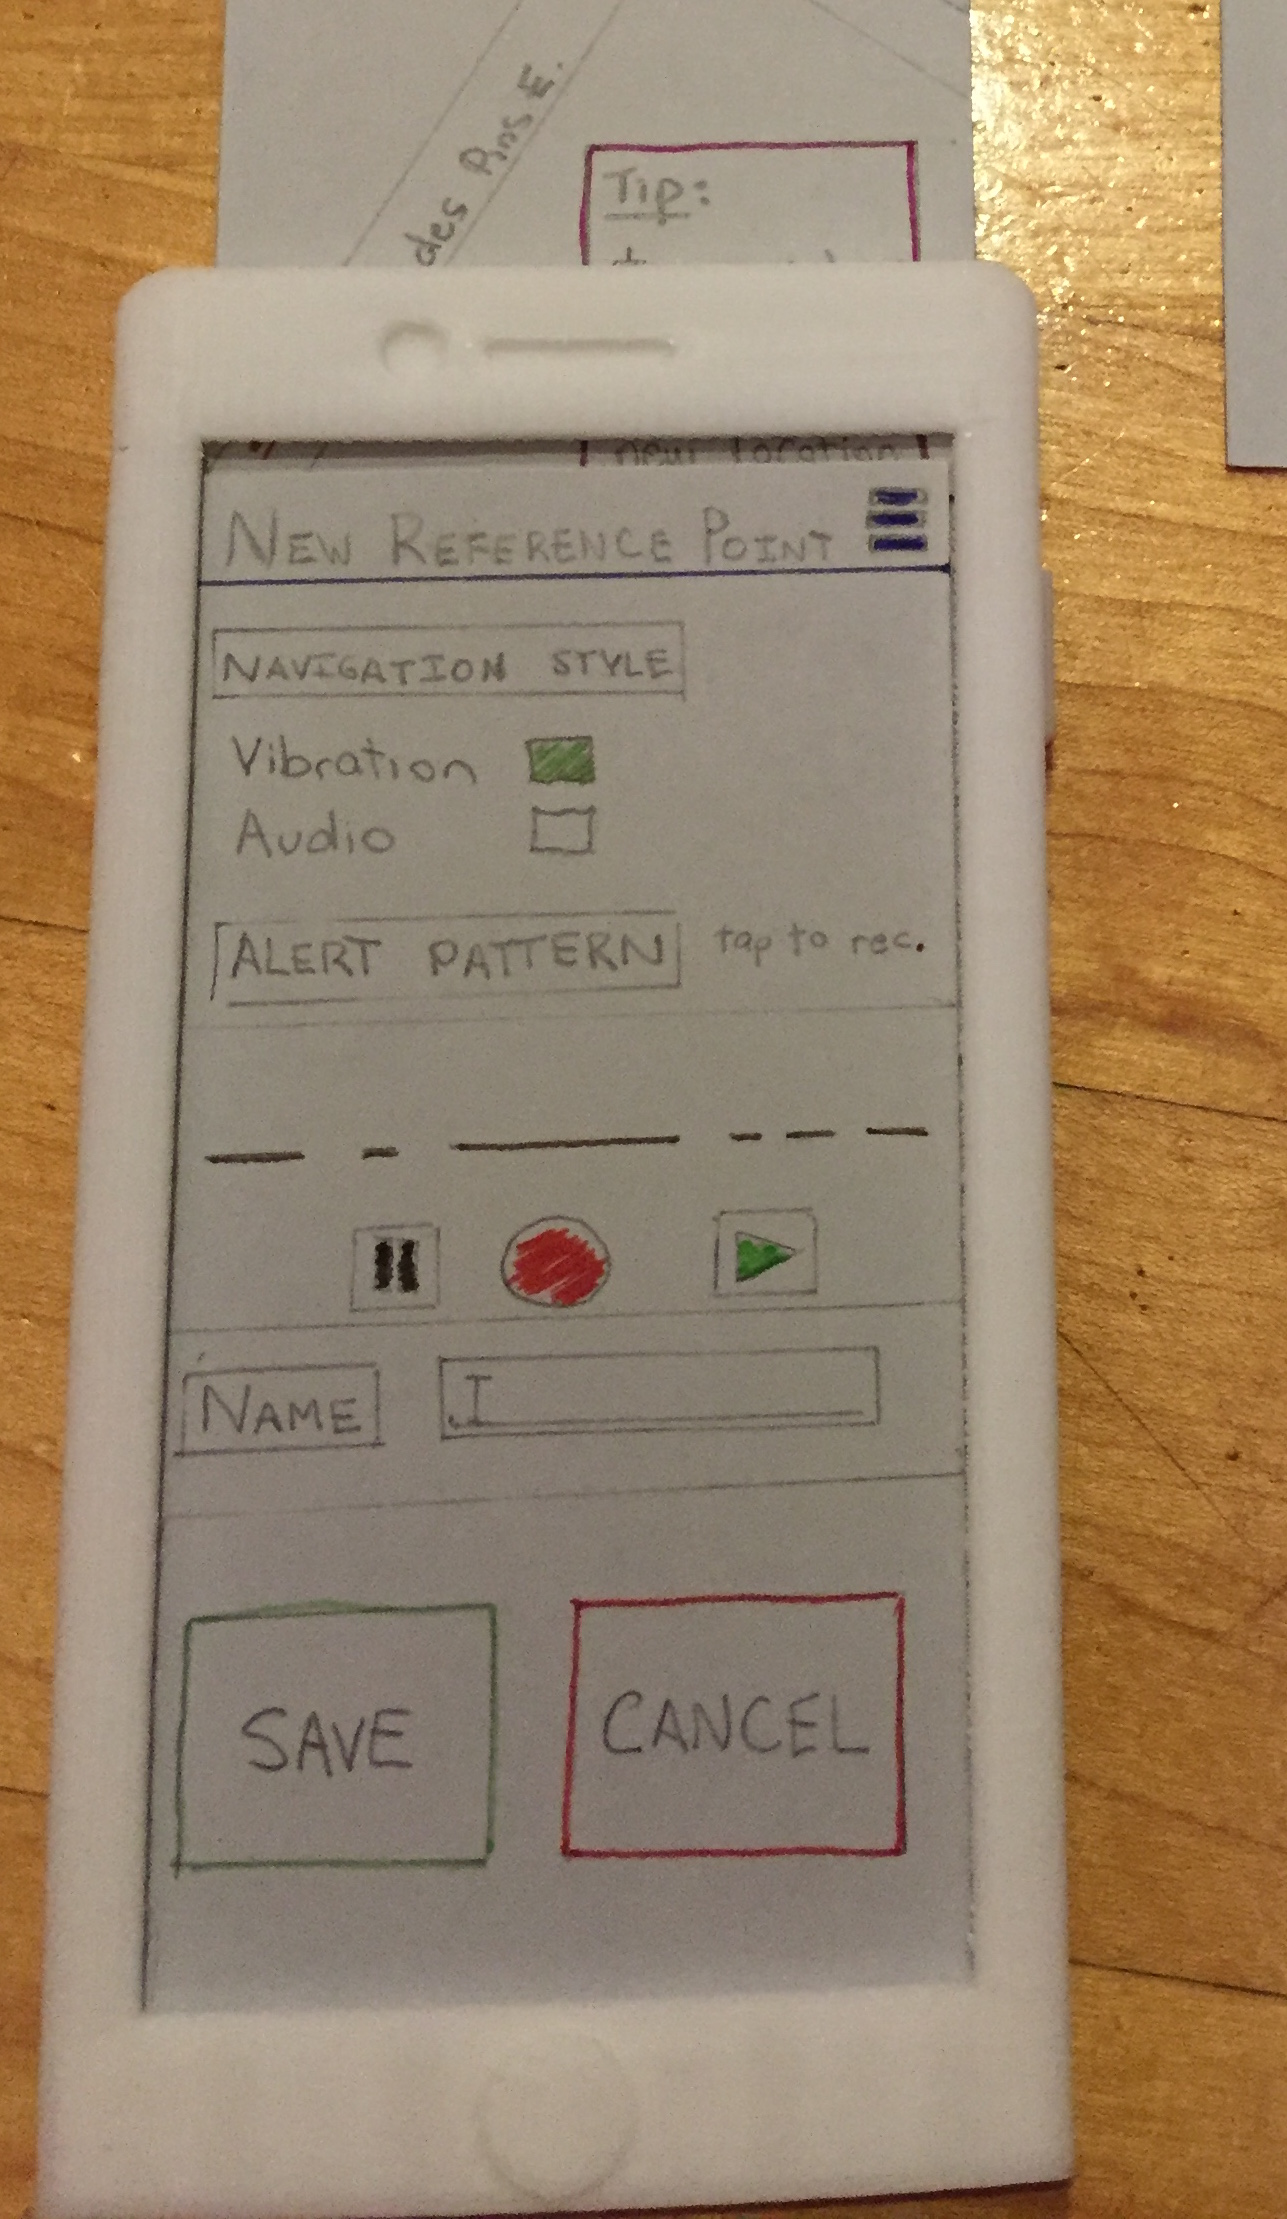 des Pins E.
Tip:
new location
NEW REFERENCE POINT
NAVIGATION STYLE
Vibration
Audio
ALERT PATTERN tap to rec.
NAME I
SAVE CANCEL